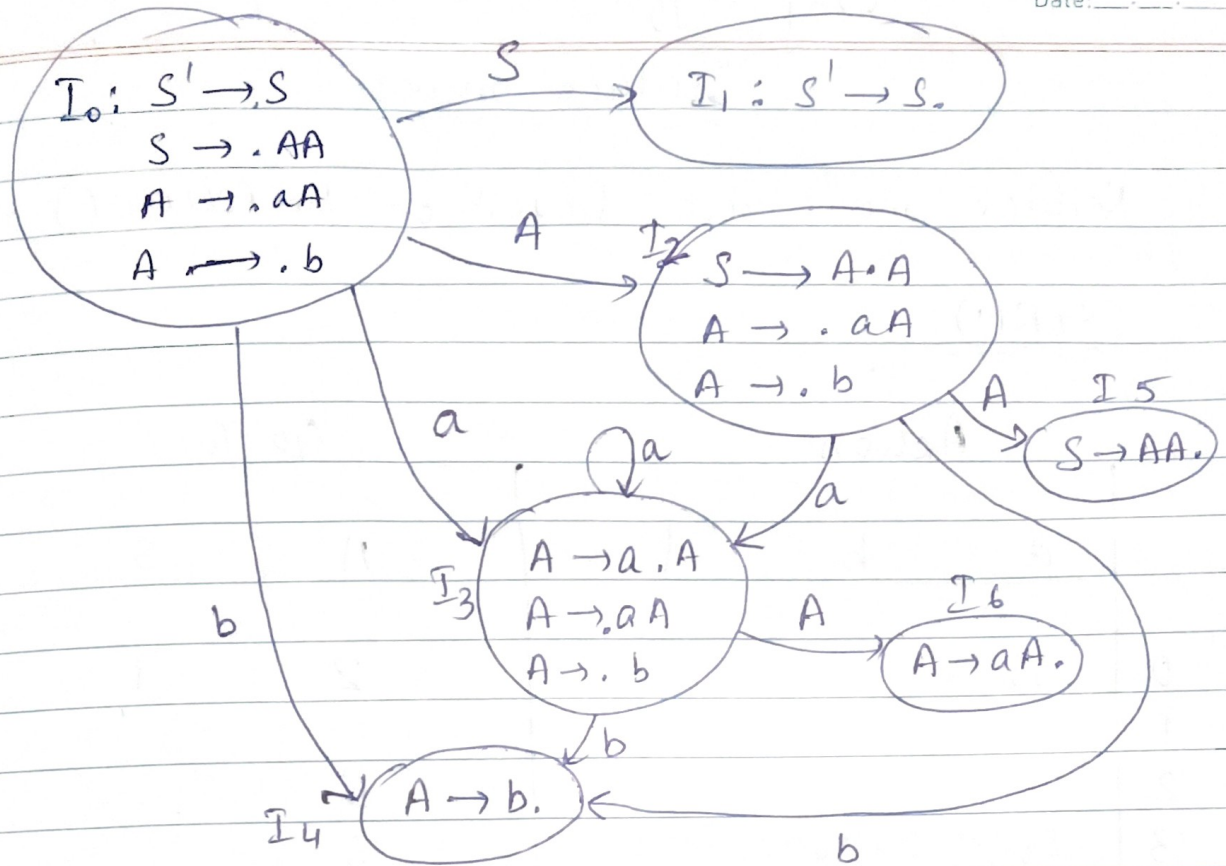 Date:
I₀: S' → .S
S → . AA
A → . aA
A → . b
S
I₁ : S' → S.
A
I₂
S → A . A
A → . aA
A → . b
A
I 5
S → AA.
a
a
a
I₃
A → a . A
A → . aA
A → . b
A
I 6
A → aA.
b
b
I₄
A → b.
b